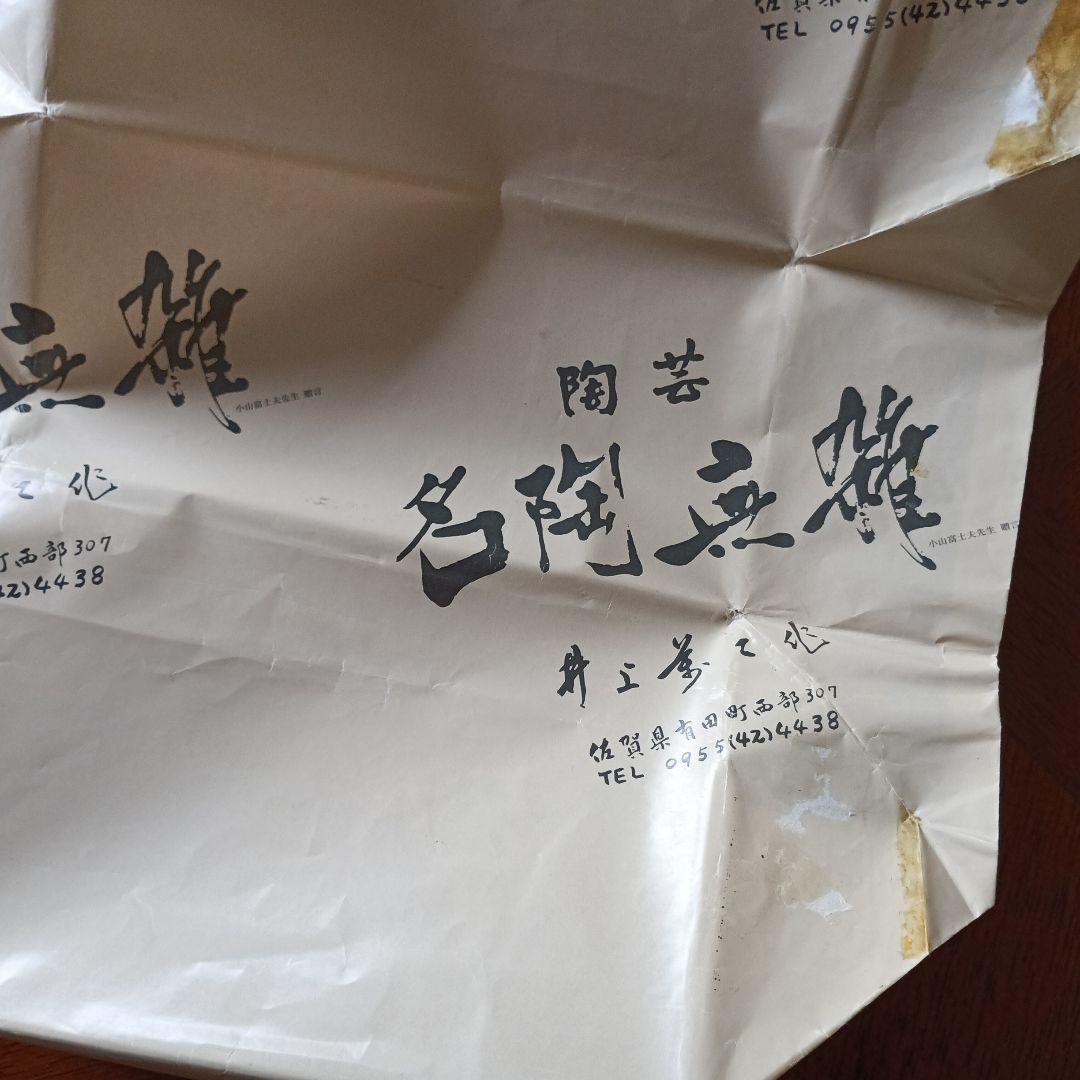 佐賀県
TEL 0955(42)4438
無雑
小山富士夫先生 贈言
之作
町西部307
42)4438
陶芸
名陶無雑
小山富士夫先生 贈言
井上萬二作
佐賀県有田町西部307
TEL 0955(42)4438